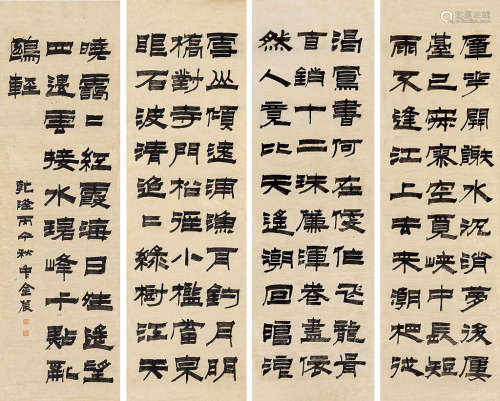 花開謝水沉消夢後廔
臺已寂寥空覓峽中長短
雨不逢江上去來潮從
渴鳳書何在作飛龍骨
自銷十二珠簾渾卷盡依
然人竟比天遙潮回
雪山傾遠浦漁釣月明
橋對寺門松徑小檻當泉
眼石波清迢〻綠樹江天
曉靄〻紅霞海日遙望
四邊雲接水碧峰千點亂
鷗輕
乾隆丙午秋中金農